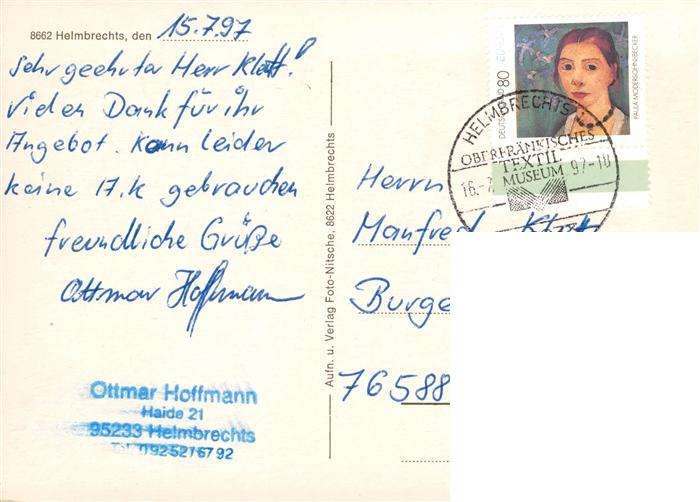 8662 Helmbrechts, den 15.7.97
Sehr geehrter Herr Klett!
vielen Dank für ihr
Angebot. Kann leider
keine A.K gebrauchen
freundliche Grüße
Ottmar Hoffmann
Ottmar Hoffmann
Haide 21
95233 Helmbrechts
Tel. 09252/6792
Aufn. u. Verlag Foto-Nitsche, 8622 Helmbrechts
DEUTSCHLAND 80
EUROPA
PAULA MODERSOHN-BECKER
HELMBRECHTS
OBERFRÄNKISCHES
TEXTIL
MUSEUM
16.-7 97-10
Herrn
Manfred
Burge
76588